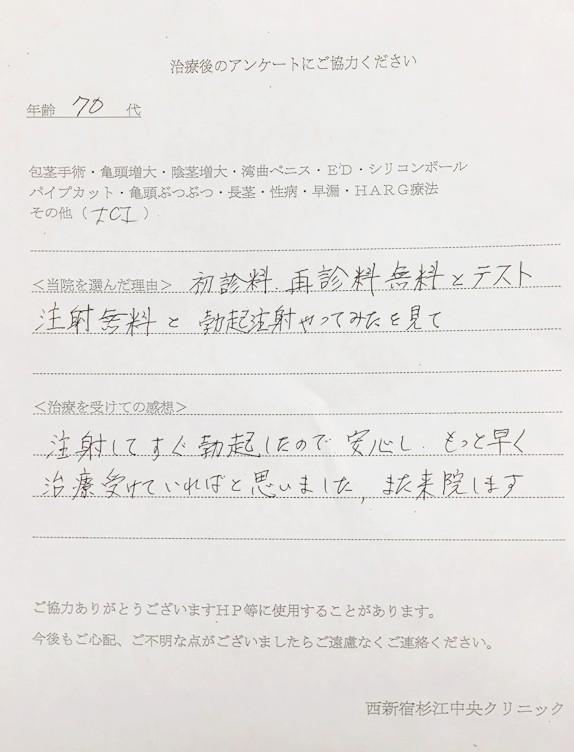 治療後のアンケートにご協力ください
年齢 70 代
包茎手術・亀頭増大・陰茎増大・湾曲ペニス・ED・シリコンボール
パイプカット・亀頭ぶつぶつ・長茎・性病・早漏・HARG療法
その他（ICI）
＜当院を選んだ理由＞ 初診料、再診料無料とテスト
注射無料と 勃起注射やってみたを見て
＜治療を受けての感想＞
注射してすぐ勃起したので 安心し、もっと早く
治療受けていればと思いました、また来院します
ご協力ありがとうございますHP等に使用することがあります。
今後もご心配、ご不明な点がございましたらご遠慮なくご連絡ください。
西新宿杉江中央クリニック